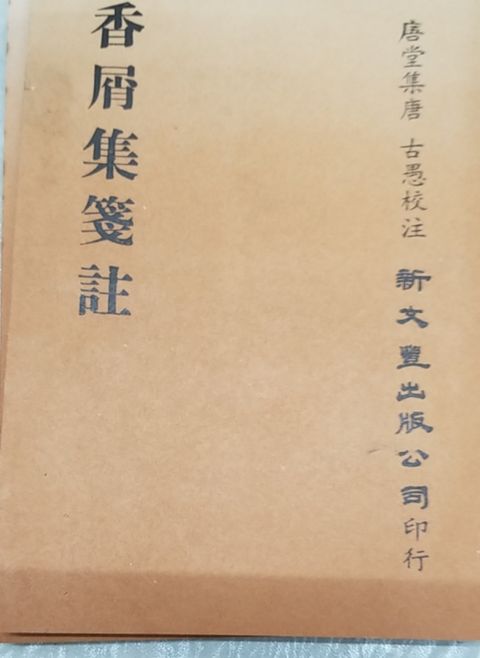 唐堂集唐 古愚校注 新文豐出版公司印行
香屑集箋註